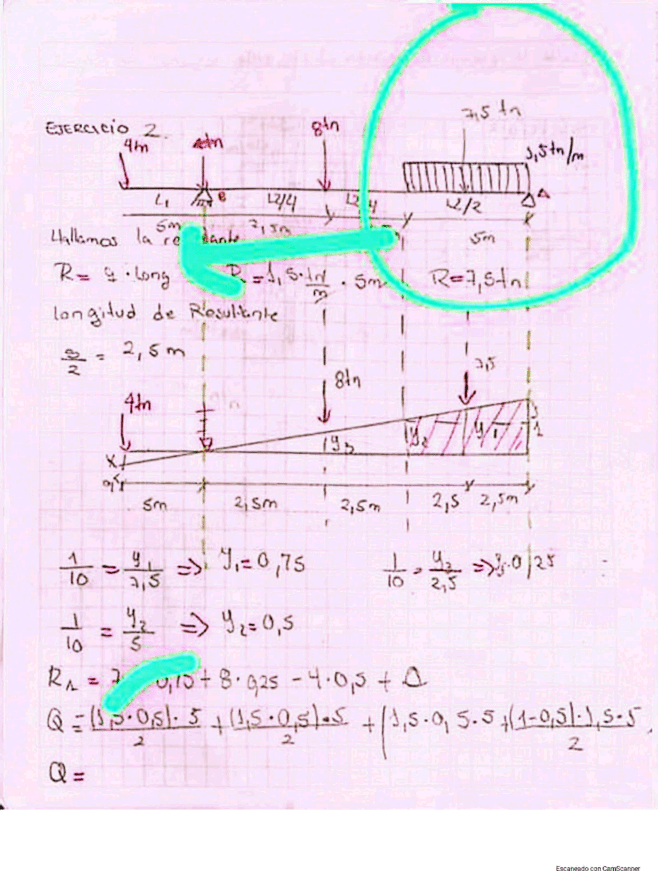 EJERCICIO 2
7,5 tn
4tn 8tn 1,5tn/m
B A
L1 L2/4 L2/2
5m 2,5m 5m
Hallamos la
R= q · Long R=1,5·tn/m · 5m R=7,5tn
longitud de Resultante
5/2 = 2,5m
8tn
4tn
y2 y1 1
x y3
0,5
5m 2,5m 2,5m 2,5 2,5m
1/10 = y1/7,5 => y1=0,75 1/10 = y3/2,5 =>
1/10 = y2/5 => y2=0,5
+ 8·0,25 - 4·0,5 +
Q = (1,5·0,5)·5/2 + (1,5·0,5)·5/2 + (1,5·0,5·5+(1-0,5)·1,5·5/2
Q=
Escaneado con CamScanner